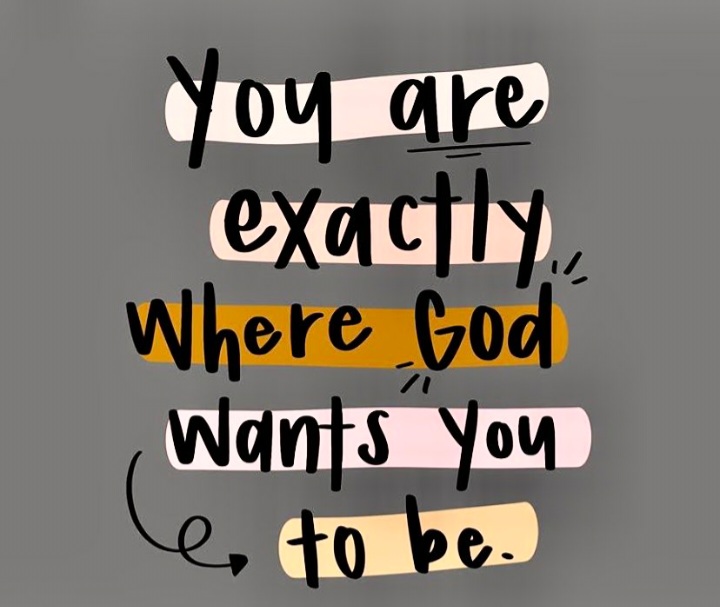 You are
exactly
where God
wants you
to be.